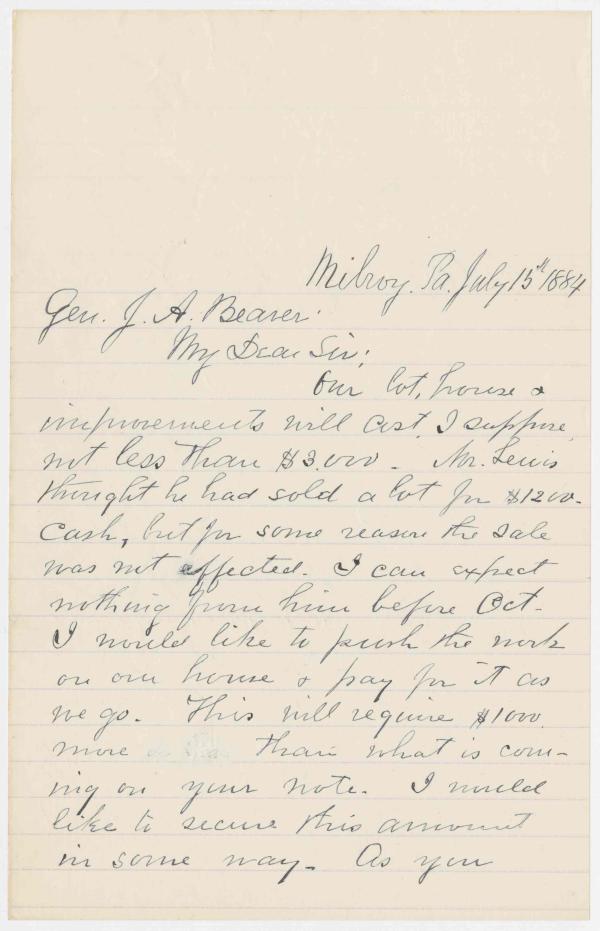 Milroy. Pa. July 15th 1884
Gen. J. A. Beaver.
My Dear Sir;
Our lot, house &
improvements will cost, I suppose,
not less than $3.000 - Mr. Lewis
thought he had sold a lot for $1200-
cash, but for some reason the sale
was not effected. I can expect
nothing from him before Oct-
I would like to push the work
on our house & pay for it as
we go. This will require $1000.
more than what is com-
ing on your note. I would
like to secure this amount
in some way. As you